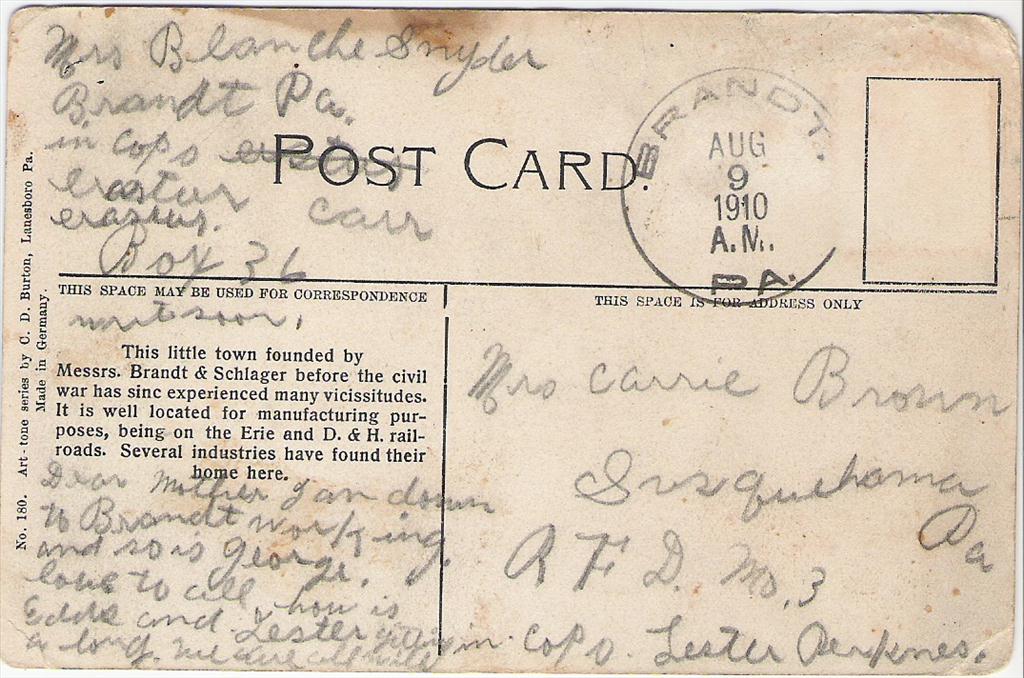 Mrs Blanche Snyder
Brandt Pa.
in Cops
erastur carr
erastus.
Box 36
POST CARD.
BRANDT.
AUG
9
1910
A.M.
PA.
THIS SPACE MAY BE USED FOR CORRESPONDENCE
write soon.
This little town founded by
Messrs. Brandt & Schlager before the civil
war has sinc experienced many vicissitudes.
It is well located for manufacturing pur-
poses, being on the Erie and D. & H. rail-
roads. Several industries have found their
home here.
Dear Mother I an down
to Brandt working.
and so is George.
love to all, how is
Eddie and Lester getting
a long. we are all well
No. 180. Art-tone series by C. D. Burton, Lanesboro Pa.
Made in Germany.
THIS SPACE IS FOR ADDRESS ONLY
Mrs Carrie Brown
Susquehanna
Pa
R F D. No. 3
in Cops. Lester Perknes.